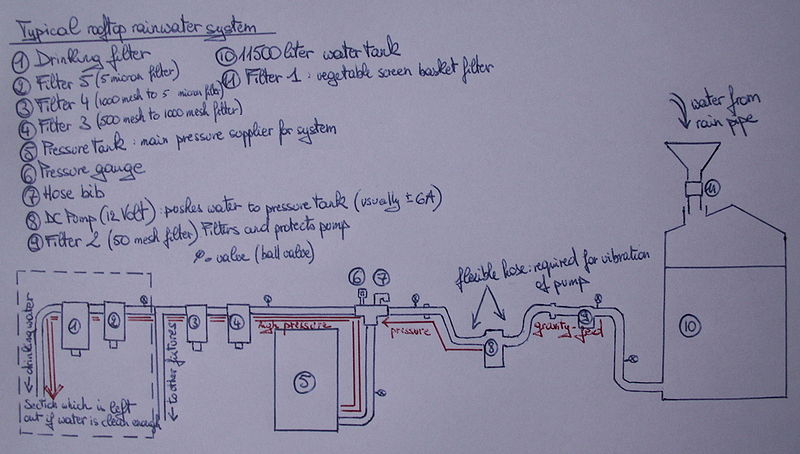 Typical rooftop rainwater system
① Drinking filter
② Filter 5 (5 micron filter)
③ Filter 4 (1000 mesh to 5 micron filter)
④ Filter 3 (500 mesh to 1000 mesh filter)
⑤ Pressure tank : main pressure supplier for system
⑥ Pressure gauge
⑦ Hose bib
⑧ DC Pump (12 Volt) : poshes water to pressure tank (usually ± 6A)
⑨ Filter 2 (50 mesh filter) Filters and protects pump
= valve (ball valve)
⑩ 11500 liter water tank
⑪ Filter 1 : vegetable screen basket filter
water from
rain pipe
⑪
flexible hose : required for vibration
of pump
⑥ ⑦
① ② ③ ④
high pressure
pressure
⑧
gravity-feed
⑨
⑩
⑤
← drinking water
← to other fixtures
Section which is left
out if water is clean enough